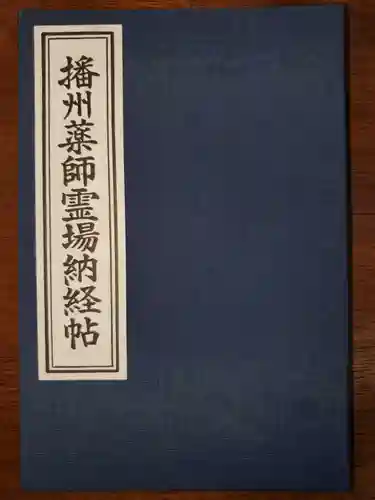 播州薬師霊場納経帖